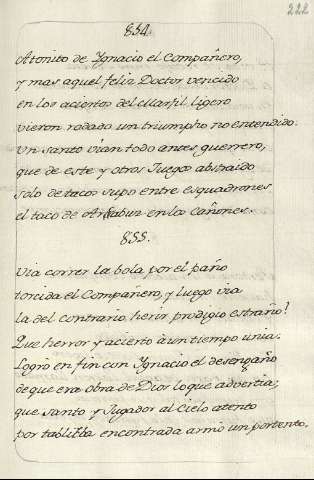 222
834.
Atonito de Ygnacio el Compañero,
y mas aquel feliz Doctor vencido
en los aciertos del Marfil ligero
vieron rodado un triumpho no entendido.
Un santo vian todo antes guerrero,
que de este y otros Juegos abstraido
solo de tacos supo entre esquadrones
el taco de Arcabuz en los Cañones.
835.
Via correr la bola por el paño
torcida el Compañero, y luego via
la del contrario herir prodigio estraño!
Que herror y acierto à un tiempo unia.
Logro en fin con Ygnacio el desengaño
de que era obra de Dios lo que advertia;
que Santo y Jugador al Cielo atento
por tablilla encontrada armó un portento.